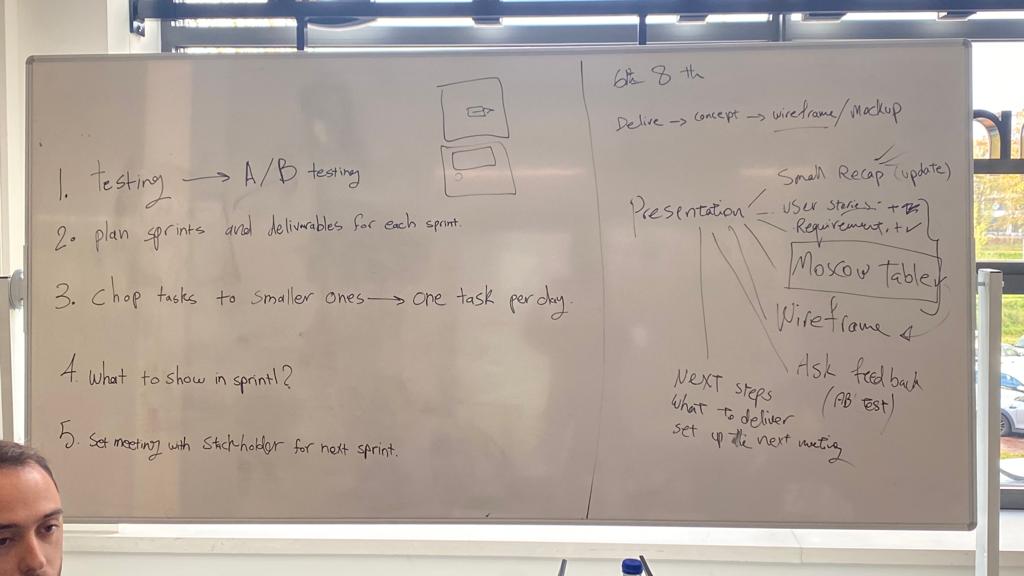 1. Testing → A/B testing
2. plan sprints and deliverables for each sprint.
3. Chop tasks to smaller ones → one task per day.
4. What to show in sprint1?
5. Set meeting with stackholder for next sprint.
8 th
Delive → concept → wireframe/Mockup
Presentation
Small Recap (update)
User stories. +
Requirement. +✓
Moscow Table
Wireframe
Ask feedback
(AB test)
Next steps
what to deliver
set up the next meeting